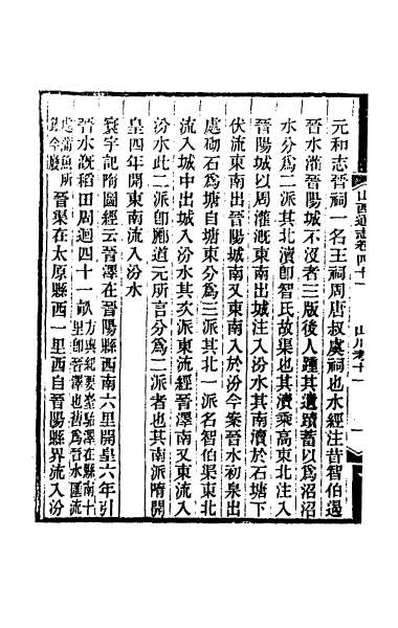 山西通志卷四十一　山川考十一
元和志晉祠一名王祠周唐叔虞祠也水經注昔智伯遏
晉水灌晉陽城不沒者三版後人踵其遺蹟蓄以爲沼沼
水分爲二派其北瀆卽智氏故渠也其瀆乘高東北注入
晉陽城以周灌漑東南出城注入汾水其南瀆於石塘下
伏流東南出晉陽城南又東南入於汾今案晉水初泉出
處砌石爲塘自塘東分爲三派其北一派名智伯渠東北
流入城中出城入汾水其次派東流經晉澤南又東流入
汾水此二派卽酈道元所言分爲二派者也其南派隋開
皇四年開東南流入汾水
寰宇記隋圖經云晉澤在晉陽縣西南六里開皇六年引
晉水漑稻田周迴四十一畝方輿紀要臺駘澤在縣南十里卽晉澤也舊爲晉水匯流
處蒲魚所鍾今廢晉渠在太原縣西一里西自晉陽縣界流入汾